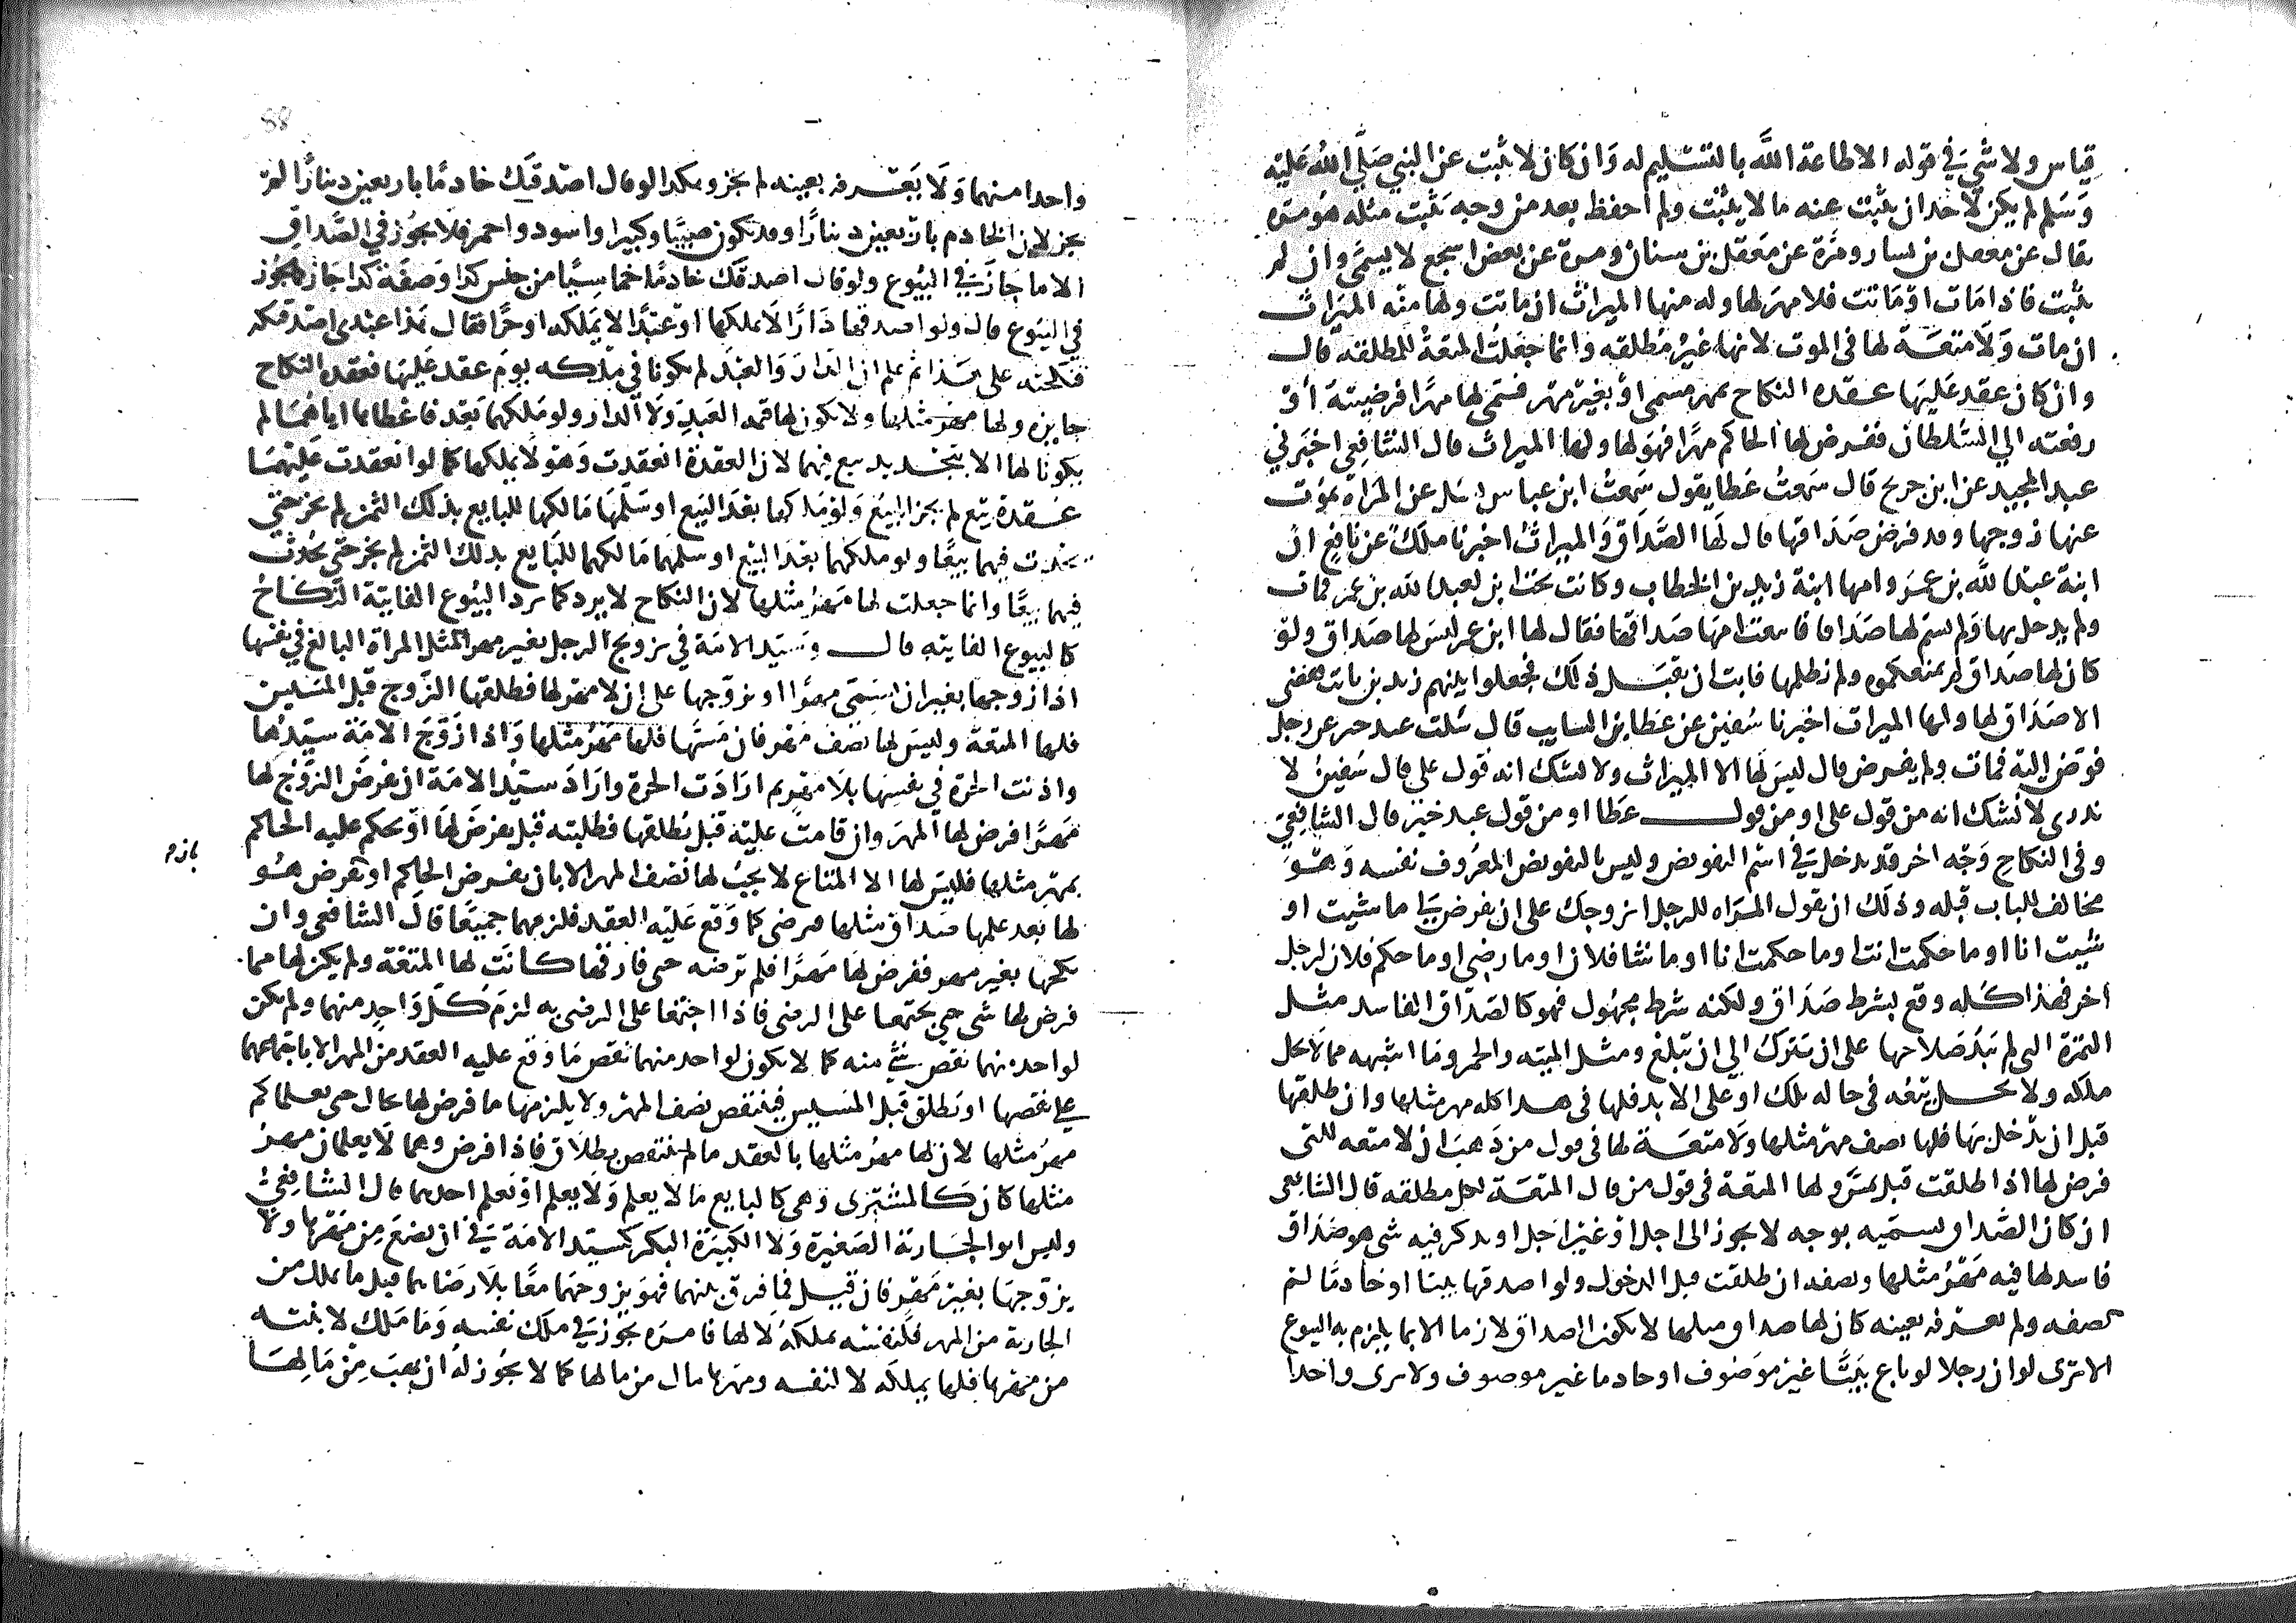 قياس ولا شي في قوله الا طاعة الله بالتسليم له وان كان لا يثبت عن النبي صلى الله عليه
وسلم لم يكن لاحد ان يثبت عنه ما لا يثبت ولم احفظ بعد من وجه يثبت مثله هو مرة
يقال عن معقل بن يسار ومرة عن معقل بن سنان ومرة عن بعض اشجع لا يسمى وان لم
يثبت فاذا مات او ماتت فلا مهر لها وله منها الميراث ان ماتت ولها منه الميراث
ان مات ولا متعة لها في الموت لانها غير مطلقه وانما جعلت المتعة للمطلقه قال
وان كان عقد عليها عقده النكاح بمهر مسمى او بغير مهر فسمى لها مهرا فرضيته او
رفعته الي السلطان ففرض لها الحاكم مهرا فهو لها ولها الميراث قال الشافعي اخبرني
عبد المجيد عن ابن جريج قال سمعت عطا يقول سمعت ابن عباس سئل عن المراة يموت
عنها زوجها وقد فرض صداقها قال لها الصداق والميراث اخبرنا ملك عن نافع ان
ابنة عبد الله بن عمر وامها ابنة زيد بن الخطاب وكانت تحت ابن لعبد الله بن عمر فمات
ولم يدخل بها ولم يسم لها صداقا فابتغت امها صداقها فقال لها ابن عمر ليس لها صداق ولو
كان لها صداق لم نمنعكموه ولم نظلمها فابت ان تقبل ذلك فجعلوا بينهم زيد بن ثابت فقضى
الا صداق لها ولها الميراث اخبرنا سفين عن عطا بن السايب قال سالت عبد خير عن رجل
فوض اليه فمات ولم يفرض قال ليس لها الا الميراث ولا نشك انه قول علي قال سفين لا
ندري لا نشك انه من قول علي او من قول عطا او من قول عبد خير قال الشافعي
وفي النكاح وجه اخر قد يدخل في اسم التفويض وليس بالتفويض المعروف نفسه وهو
مخالف للباب قبله وذلك ان تقول المراه للرجل اتزوجك على ان تفرض لي ما شيت او
شيت انا او ما حكمت انت او ما حكمت انا او ما شا فلان او ما رضي او ما حكم فلان لرجل
اخر فهذا كله وقع بشرط صداق ولكنه شرط مجهول فهو كالصداق الفاسد مثل
الثمرة التي لم يبد صلاحها على ان تترك الي ان تبلغ ومثل الميته والخمر وما اشبهه مما لا يحل
ملكه ولا يحل بيعه في حاله تلك او على الابد فلها في هذا كله مهر مثلها وان طلقها
قبل ان يدخل بها فلها نصف مهر مثلها ولا متعة لها في قول من ذهب ان لا متعه للتي
فرض لها اذا طلقت قبل تمس ولها المتعة في قول من قال المتعة لكل مطلقه قال الشافعي
ان كان الصداق يسميه بوجه لا يجوز الى اجل او غير اجل او يذكر فيه شي هو صداق
فاسد لها فيه مهر مثلها ونصفه ان طلقت قبل الدخول ولو اصدقها بيتا او خادما لم
يصفه ولم يعرفه بعينه كان لها صداق مثلها لا يكون الصداق لازما الا بما يلزم به البيوع
الا ترى لو ان رجلا لو باع بيتا غير موصوف او خادما غير موصوف ولا يرى واحدا
واحدا منهما ولا يعرفه بعينه لم يجز وهكذا لو قال اصدقتك خادما باربعين دينارا لم
يجز لان الخادم باربعين دينارا وقد يكون صبيا وكبيرا واسود واحمر فلا يجوز في الصداق
الا ما جاز في البيوع ولو قال اصدقتك خادما خماسيا من جنس كذا وصفة كذا جاز كما يجوز
في البيوع قال ولو اصدقها دارا لا يملكها او عبدا لا يملكه او حرا فقال هذا عبدي اصدقتكه
فنكحته على هذا ثم علم ان الدار والعبد لم يكونا في ملكه يوم عقد عليها فعقده النكاح
جايزه ولها مهر مثلها ولا يكون لها قيمه العبد ولا الدار ولو ملكهما بعد فاعطاها اياهما لم
يكونا لها الا بتجديد بيع فيهما لان العقدة انعقدت وهو لا يملكها كما لو انعقدت عليهما
عقدة بيع لم يجز البيع ولو ملكها بعد البيع او سلمها مالكها للبايع بذلك الثمن لم يجز حتى
يحدث فيهما بيعا ولو ملكهما بعد البيع او سلمهما مالكهما للبايع بذلك الثمن لم يجز حتى يحدث
فيهما بيعا وانما جعلت لها مهر مثلها لان النكاح لا يرد كما ترد البيوع الفايتة النكاح
كالبيوع الفايته قال وسيد الامة في تزويج الرجل بغير مهر المثل المراة البالغ في نفسها
اذا زوجها بغير ان يسمى مهرا او زوجها على ان لا مهر لها فطلقها الزوج قبل المسيس
فلها المتعة وليس لها نصف مهر فان مسها فلها مهر مثلها واذا زوج الامة سيدها
واذنت الحرة في نفسها بلا مهر ثم ارادت الحرة واراد سيد الامة ان يفرض الزوج لها
مهرا فرض لها المهر وان قامت عليه قبل يطلقها فطلبته قبل يفرض لها او يحكم عليه الحاكم
بمهر مثلها فليس لها الا المتاع لا يجب لها نصف المهر الا بان يفرض الحاكم او يفرض هو
لها بعد علمها صداق مثلها فترضى كما وقع عليه العقد فلزمهما جميعا قال الشافعي وان
نكحها بغير مهر ففرض لها مهرا فلم ترضه حتى فارقها كانت لها المتعة ولم يكن لها مما
فرض لها شي حتى يجتمعا على الرضى فاذا اجتمعا على الرضى به لزم كل واحد منهما ولم يكن
لواحد منهما نقض شي منه كما لا يكون لواحد منهما نقض ما وقع عليه العقد من المهر الا باجتماعهما
على نقضها او يطلق قبل المسيس فينتقص نصف المهر ولا يلزمها ما فرض لها بحال حتى يعلما كم
مهر مثلها لان لها مهر مثلها بالعقد ما لم ينتقص بطلاق فاذا فرض وهما لا يعلمان مهر
مثلها كان كالمشتري وهي كالبايع ما لا يعلم ولا يعلم او يعلم احدهما قال الشافعي
وليس ابو الجارية الصغيرة ولا الكبيرة البكر كسيد الامة في ان يضع من مهرها ولا
يزوجها بغير مهر فان قيل فما فرق بينهما فهو يزوجهما معا بلا رضاهما قيل ما يملك من
الجارية من المهر فلنفسه يملكه لا لها فامره يجوز في ملك نفسه وما ملك لابنته
من مهرها فلها يملكه لا لنفسه ومهرها مال من مالها كما لا يجوز له ان يهب من مالها